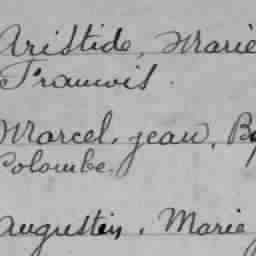 Aristide, Marie
Francois.
Marcel, jean,
Colombe.
Augustin, Marie